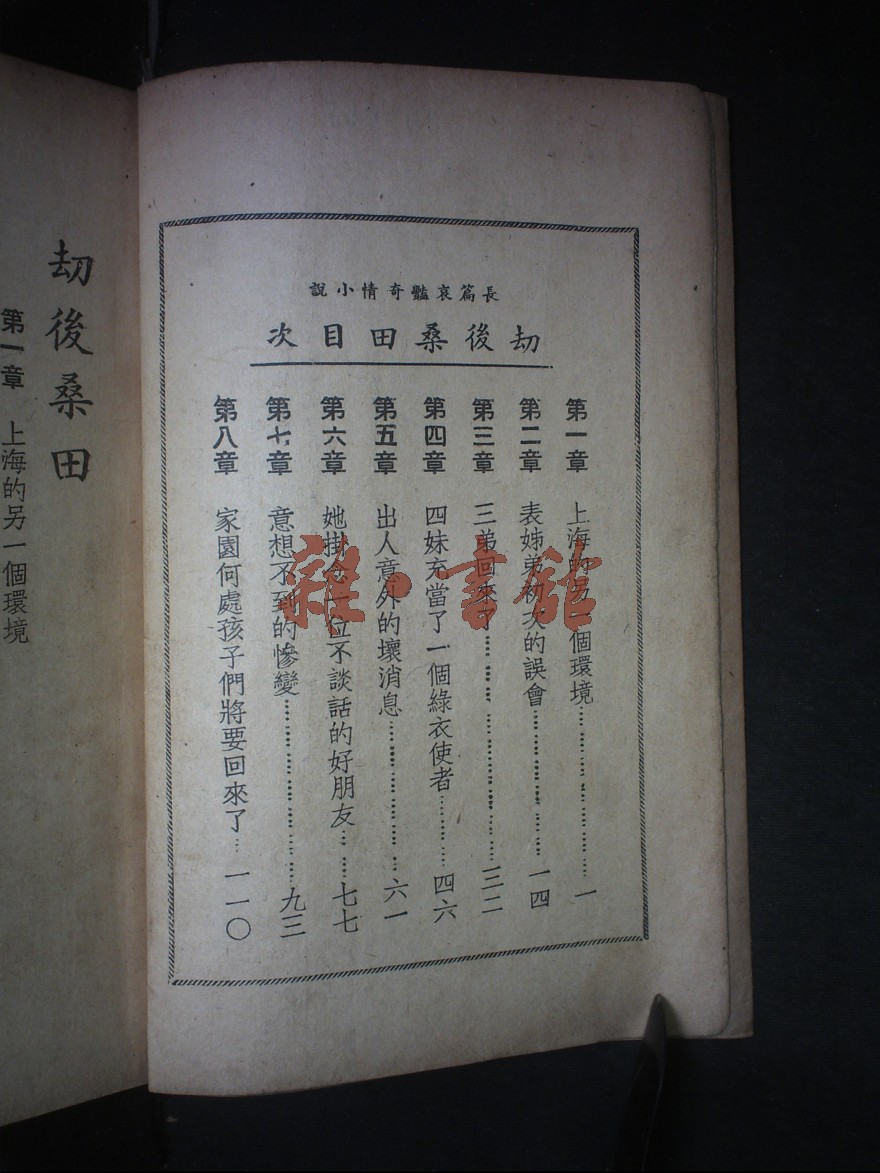 長篇哀豔奇情小說
刧後桑田目次
第一章 上海的另一個環境 一
第二章 表姊弟初次的誤會 一四
第三章 三弟回來了 三二
第四章 四妹充當了一個綠衣使者 四六
第五章 出人意外的壞消息 六一
第六章 她掛念一位不談話的好朋友 七七
第七章 意想不到的慘變 九三
第八章 家園何處孩子們將要回來了 一一〇
刧後桑田
第一章 上海的另一個環境
雜·書館